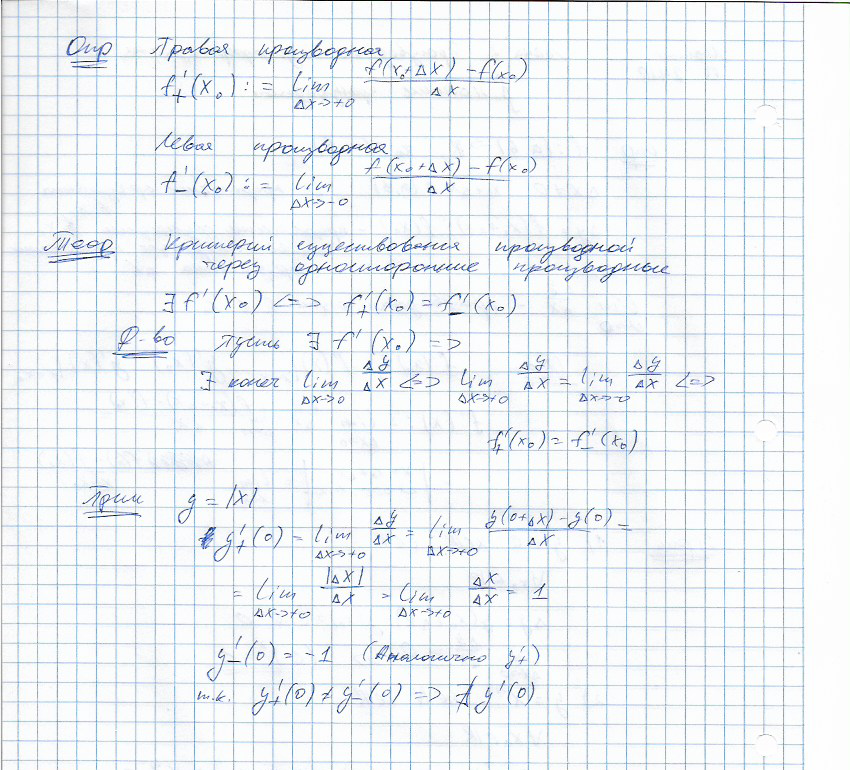 Опр Правая производная
f'₊(x₀) := lim_{Δx→+0} (f(x₀+Δx) - f(x₀))/Δx
Левая производная
f'₋(x₀) := lim_{Δx→-0} (f(x₀+Δx) - f(x₀))/Δx
Теор Критерий существования производной
через односторонние производные
∃ f'(x₀) <=> f'₊(x₀) = f'₋(x₀)
Д-во Пусть ∃ f'(x₀) =>
∃ конеч lim_{Δx→0} Δy/Δx <=> lim_{Δx→+0} Δy/Δx = lim_{Δx→-0} Δy/Δx <=>
f'₊(x₀) = f'₋(x₀)
Прим y = |x|
y'₊(0) = lim_{Δx→+0} Δy/Δx = lim_{Δx→+0} (y(0+Δx) - y(0))/Δx =
= lim_{Δx→+0} |Δx|/Δx = lim_{Δx→+0} Δx/Δx = 1
y'₋(0) = -1 (Аналогично y'₊)
т.к. y'₊(0) ≠ y'₋(0) => ∄ y'(0)